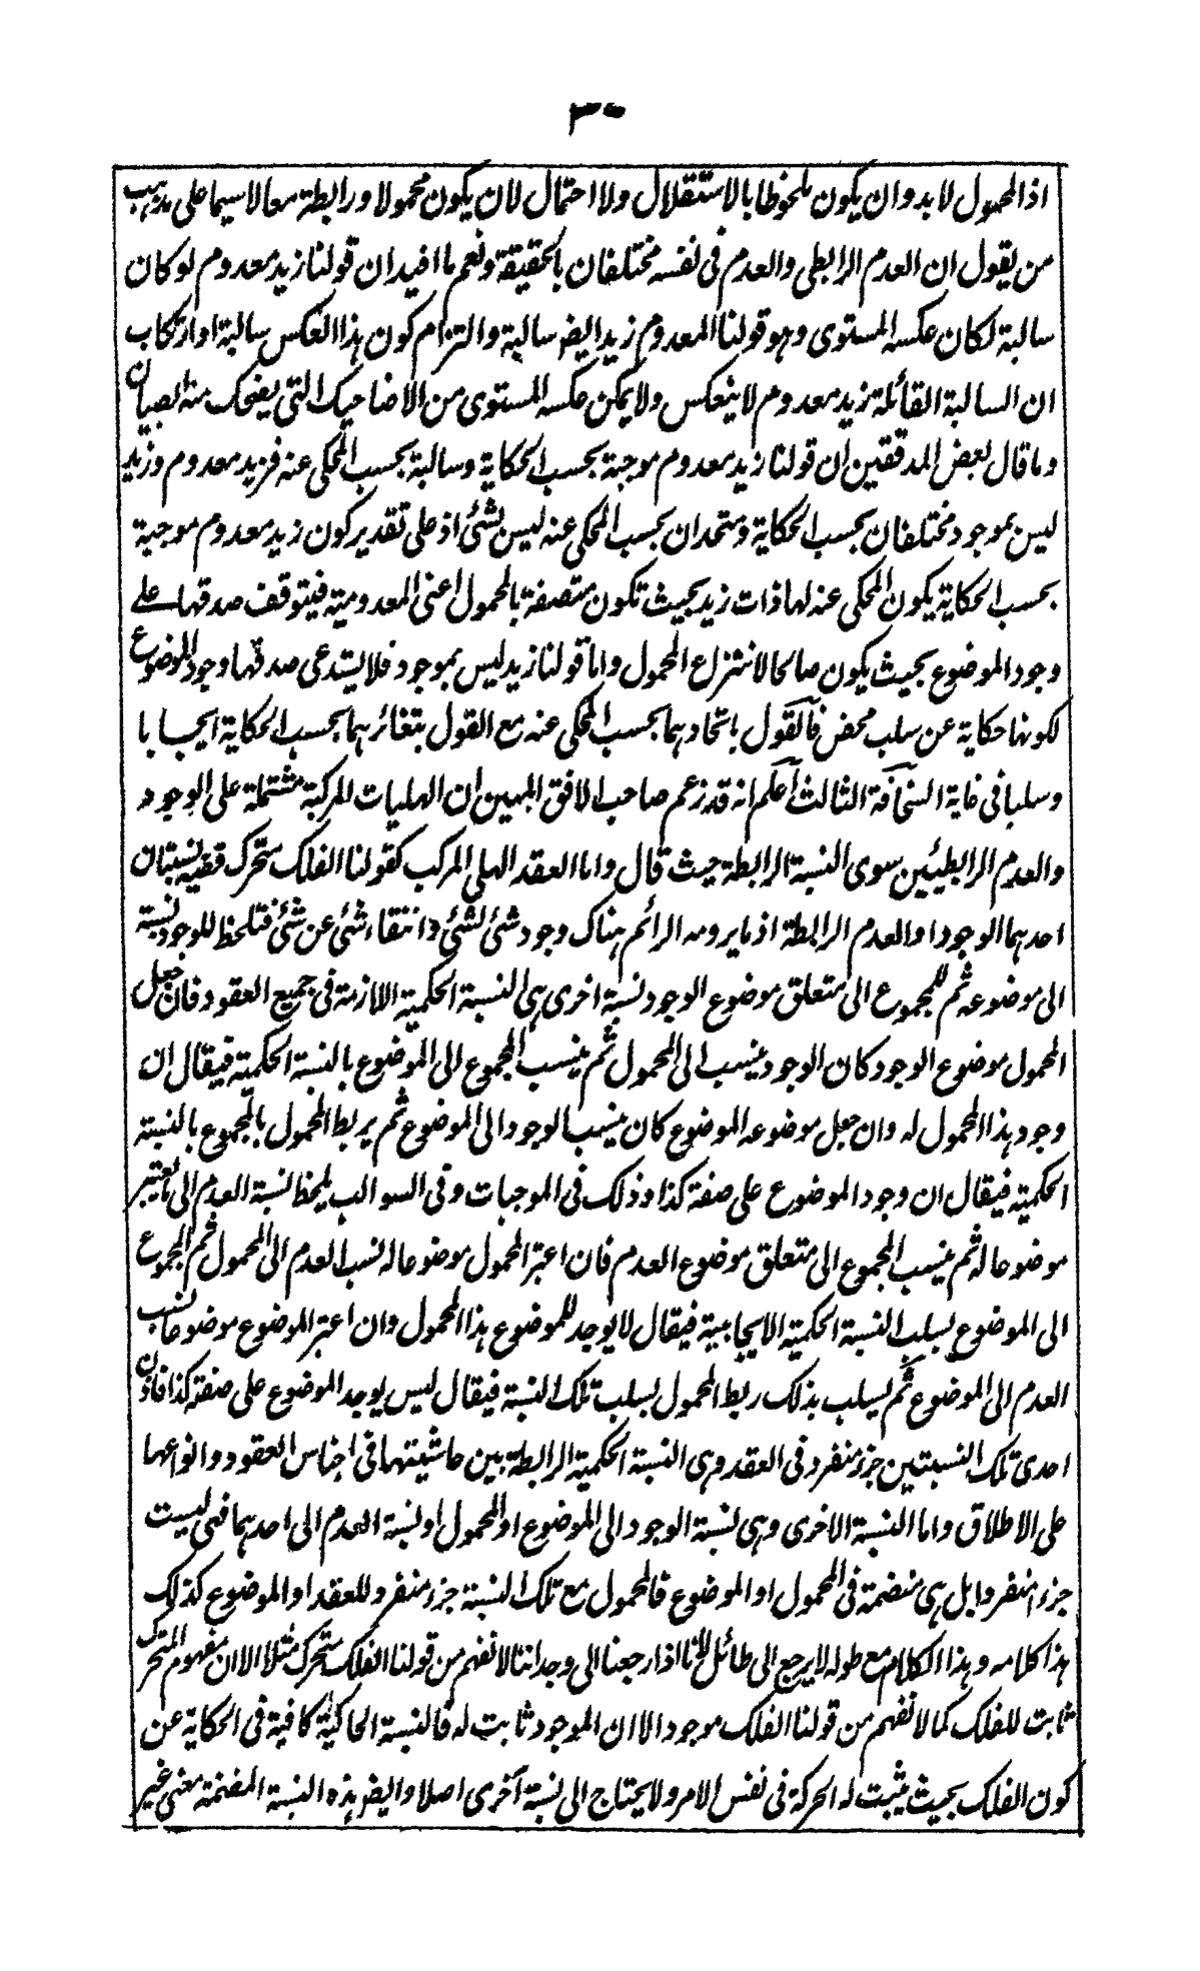 ٣٠
اذ المحمول لا بد وان يكون ملحوظا بالاستقلال ولا احتمال لان يكون محمولا ورابطة معا لا سيما على مذهب
من يقول ان العدم الرابطى والعدم فى نفسه مختلفان بالحقيقة ونعم ما افيد ان قولنا زيد معدوم لو كان
سالبة لكان عكسه المستوى وهو قولنا المعدوم زيد ايض سالبة والتزام كون هذا العكس سالبة او ارتكاب
ان السالبة القائلة زيد معدوم لا ينعكس ولا يمكن عكسه المستوى من الاضاحيك التى يضحك منه الصبيان
وما قال بعض المدققين ان قولنا زيد معدوم موجبة بحسب الحكاية وسالبة بحسب المحكى عنه فزيد معدوم وزيد
ليس بموجود مختلفان بحسب الحكاية ومتحدان بحسب المحكى عنه ليس بشئ اذ على تقدير كون زيد معدوم موجبة
بحسب الحكاية يكون المحكى عنه لها ذات زيد بحيث تكون متصفة بالمحمول اعنى المعدومية فيتوقف صدقها على
وجود الموضوع بحيث يكون صالحا لانتزاع المحمول واما قولنا زيد ليس بموجود فلا يستدعى صدقها وجود الموضوع
لكونها حكاية عن سلب محض فالقول باتحادهما بحسب المحكى عنه مع القول بتغائرهما بحسب الحكاية ايجابا
وسلبا فى غاية السخافة الثالث اعلم انه قد زعم صاحب الافق المبين ان الهليات المركبة مشتملة على الوجود
والعدم الرابطيين سوى النسبة الرابطة حيث قال واما العقد الهلى المركب كقولنا الفلك متحرك ففيه نسبتان
احدهما الوجود او العدم الرابطة اذ ما يرومه الرائم هناك وجود شئ لشئ وانتفاء شئ عن شئ فتلحظ للوجود نسبة
الى موضوعه ثم للمجموع الى متعلق موضوع الوجود نسبة اخرى هى النسبة الحكمية اللازمة فى جميع العقود فان جعل
المحمول موضوع الوجود كان الوجود ينسب الى المحمول ثم ينسب المجموع الى الموضوع بالنسبة الحكمية فيقال ان
وجود هذا المحمول له وان جعل موضوعه الموضوع كان ينسب الوجود الى الموضوع ثم يربط المحمول بالمجموع بالنسبة
الحكمية فيقال ان وجود الموضوع على صفة كذا وذلك فى الموجبات وفى السوالب يلحظ نسبة العدم الى ما يعتبر
موضوعا له ثم ينسب المجموع الى متعلق موضوع العدم فان اعتبر المحمول موضوعا له نسب العدم الى المحمول ثم المجموع
الى الموضوع بسلب النسبة الحكمية الايجابية فيقال لا يوجد للموضوع هذا المحمول وان اعتبر الموضوع موضوعا نسب
العدم الى الموضوع ثم يسلب بذلك ربط المحمول بسلب تلك النسبة فيقال ليس يوجد الموضوع على صفة كذا فاذن
احدى تلك النسبتين جزء منفرد فى العقد وهى النسبة الحكمية الرابطة بين حاشيتهما فى اجناس العقود وانواعها
على الاطلاق واما النسبة الاخرى وهى نسبة الوجود الى الموضوع او المحمول او نسبة العدم الى احدهما فهى ليست
جزء منفردا بل هى منضمة فى المحمول او الموضوع فالمحمول مع تلك النسبة جزء منفرد للعقد او الموضوع كذلك
هذا كلامه وهذا الكلام مع طوله لا يرجع الى طائل لانا اذا رجعنا الى وجداننا لا نفهم من قولنا الفلك متحرك مثلا الا ان مفهوم المتحرك
ثابت للفلك كما لا نفهم من قولنا الفلك موجود الا ان الموجود ثابت له فالنسبة الحاكية كافية فى الحكاية عن
كون الفلك بحيث يثبت له الحركة فى نفس الامر ولا يحتاج الى نسبة اخرى اصلا وايض هذه النسبة المضمنة معنى غير